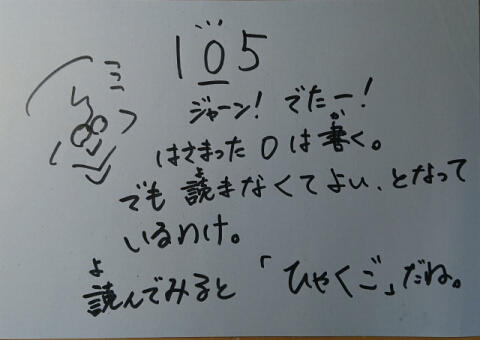 105
ジャーン! でたー!
はさまった0は書く。
でも読まなくてよい、となって
いるわけ。
読んでみると「ひゃくご」だね。